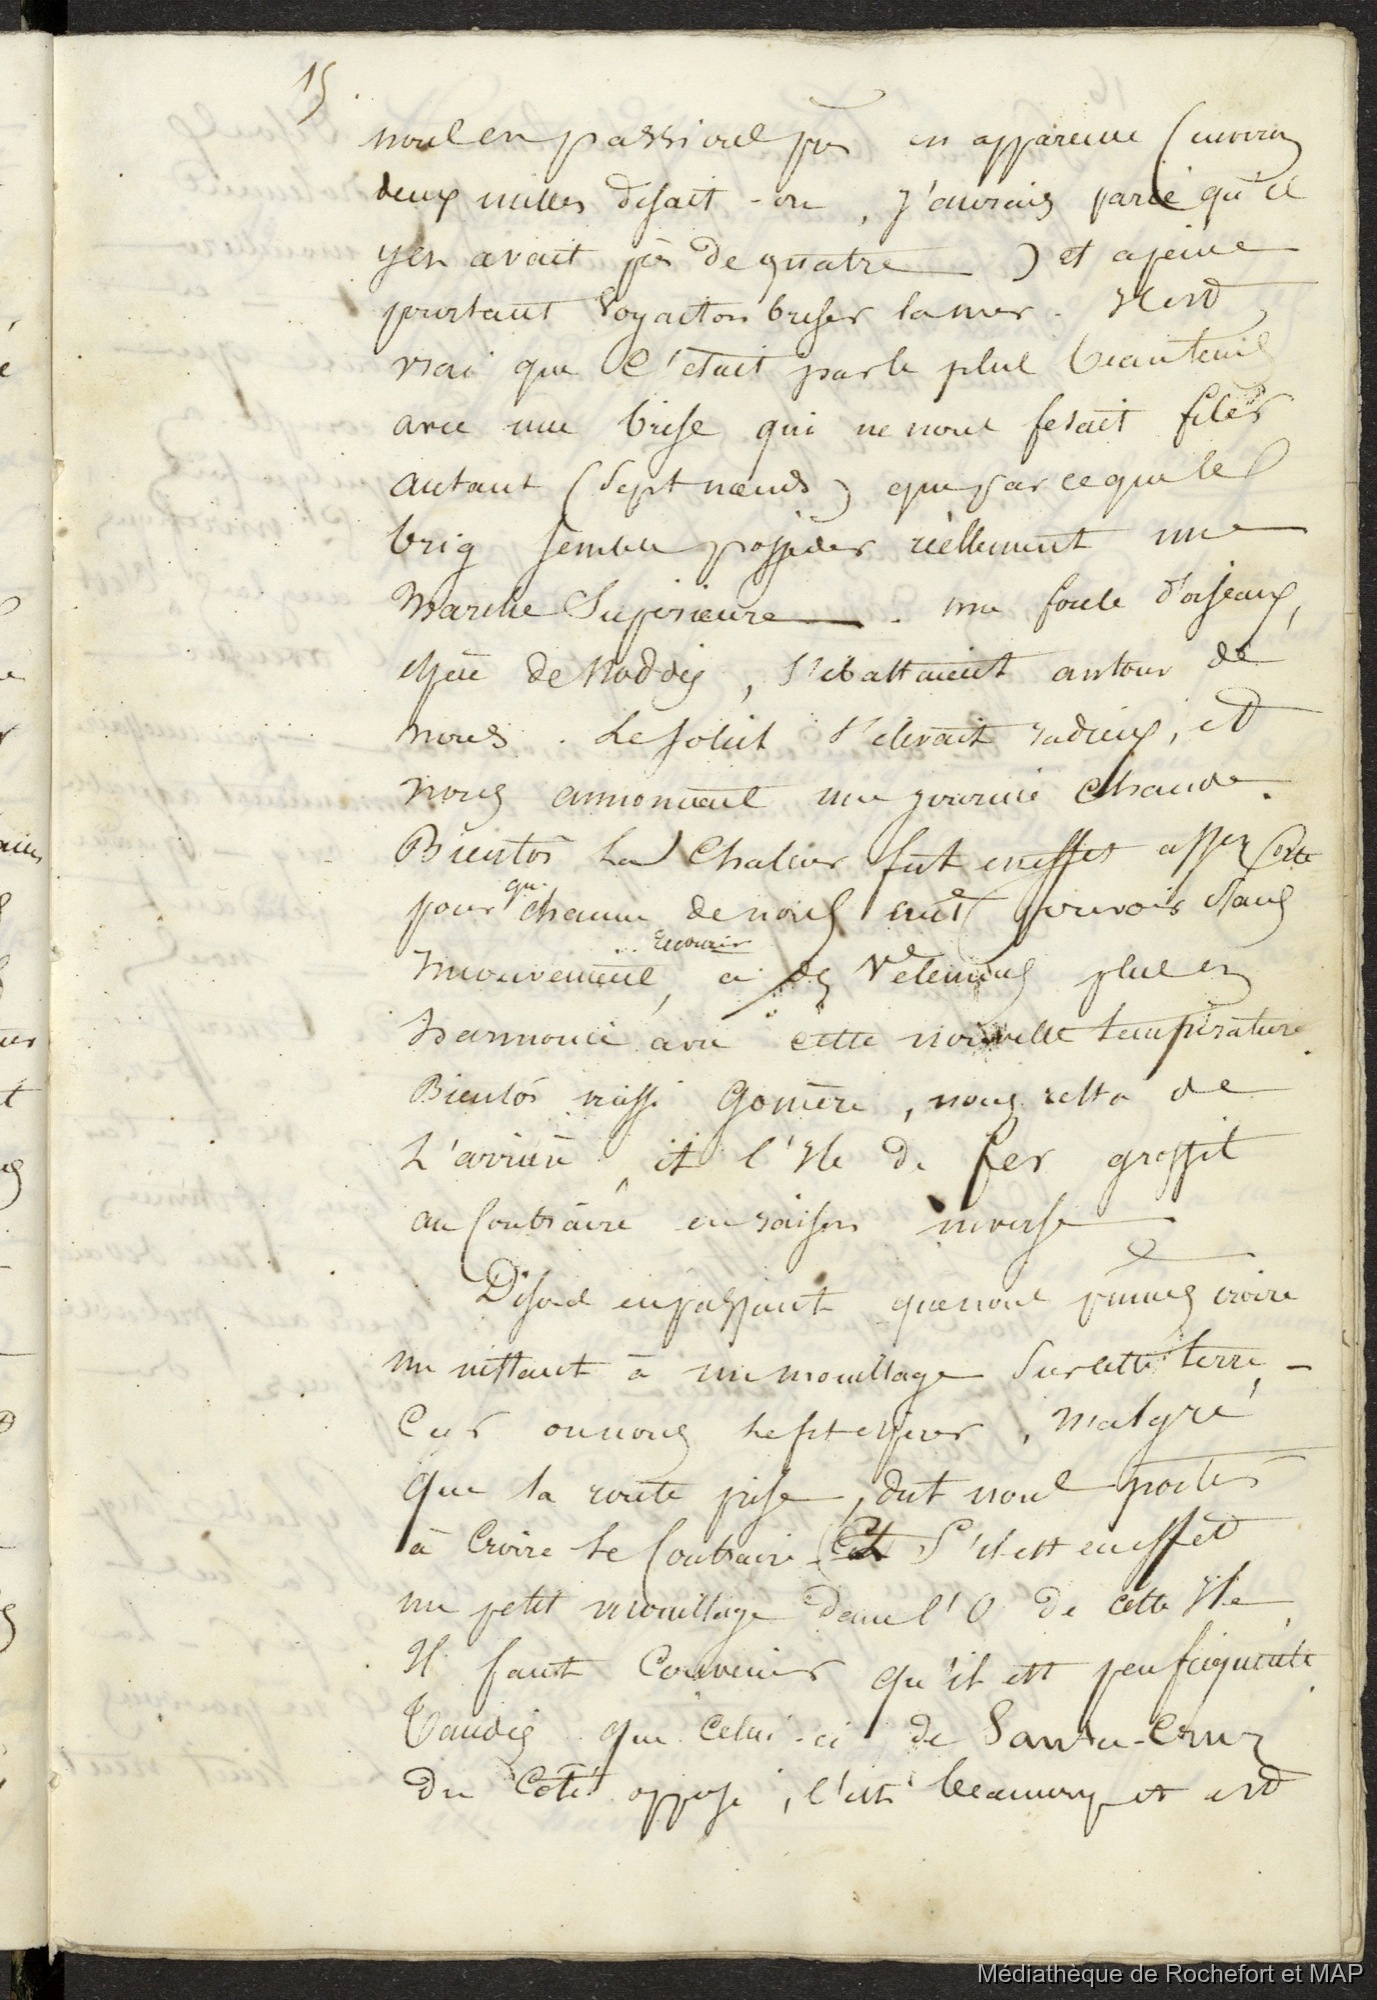 15.
nous en passions près en apparence (environ
deux milles disait-on, j'aurais parié qu'il
y en avait près de quatre) et a peine
pourtant voyait on briser la mer. Il est
vrai que c'était par le plus beau temps
avec une brise qui ne nous fesait filer
autant (sept nœuds) que parce que le
brig semble posséder réellement une
marche Supérieure. une foule d'oiseaux,
espèce de Noddis, s'ébattaient autour de
nous. Le soleil s'élevait radieux, et
nous annonçait une journée chaude.
Bientôt La Chaleur fut en effet assez forte
pour qu'chacun de nous eut pouvoir dans
mouvement, recourir à des Vêtemens plus en
harmonie avec cette nouvelle température.
Bientôt aussi Gomère, nous resta de
L'arrière, et l'Ile de fer grossit
au Contraire en raison inverse
Disons en passant que nous pumes croire
un instant à un mouillage Sur cette terre -
Car on nous le fit espérer, malgré
que la route prise, dut nous porter
à Croire le Contraire. S'il est en effet
un petit mouillage dans l'O de cette Ile
Il faut Convenir qu'il est peu fréquenté
Tandis que Celui-ci de Santa-Cruz
du Côté opposé, l'est beaucoup et est
Médiathèque de Rochefort et MAP